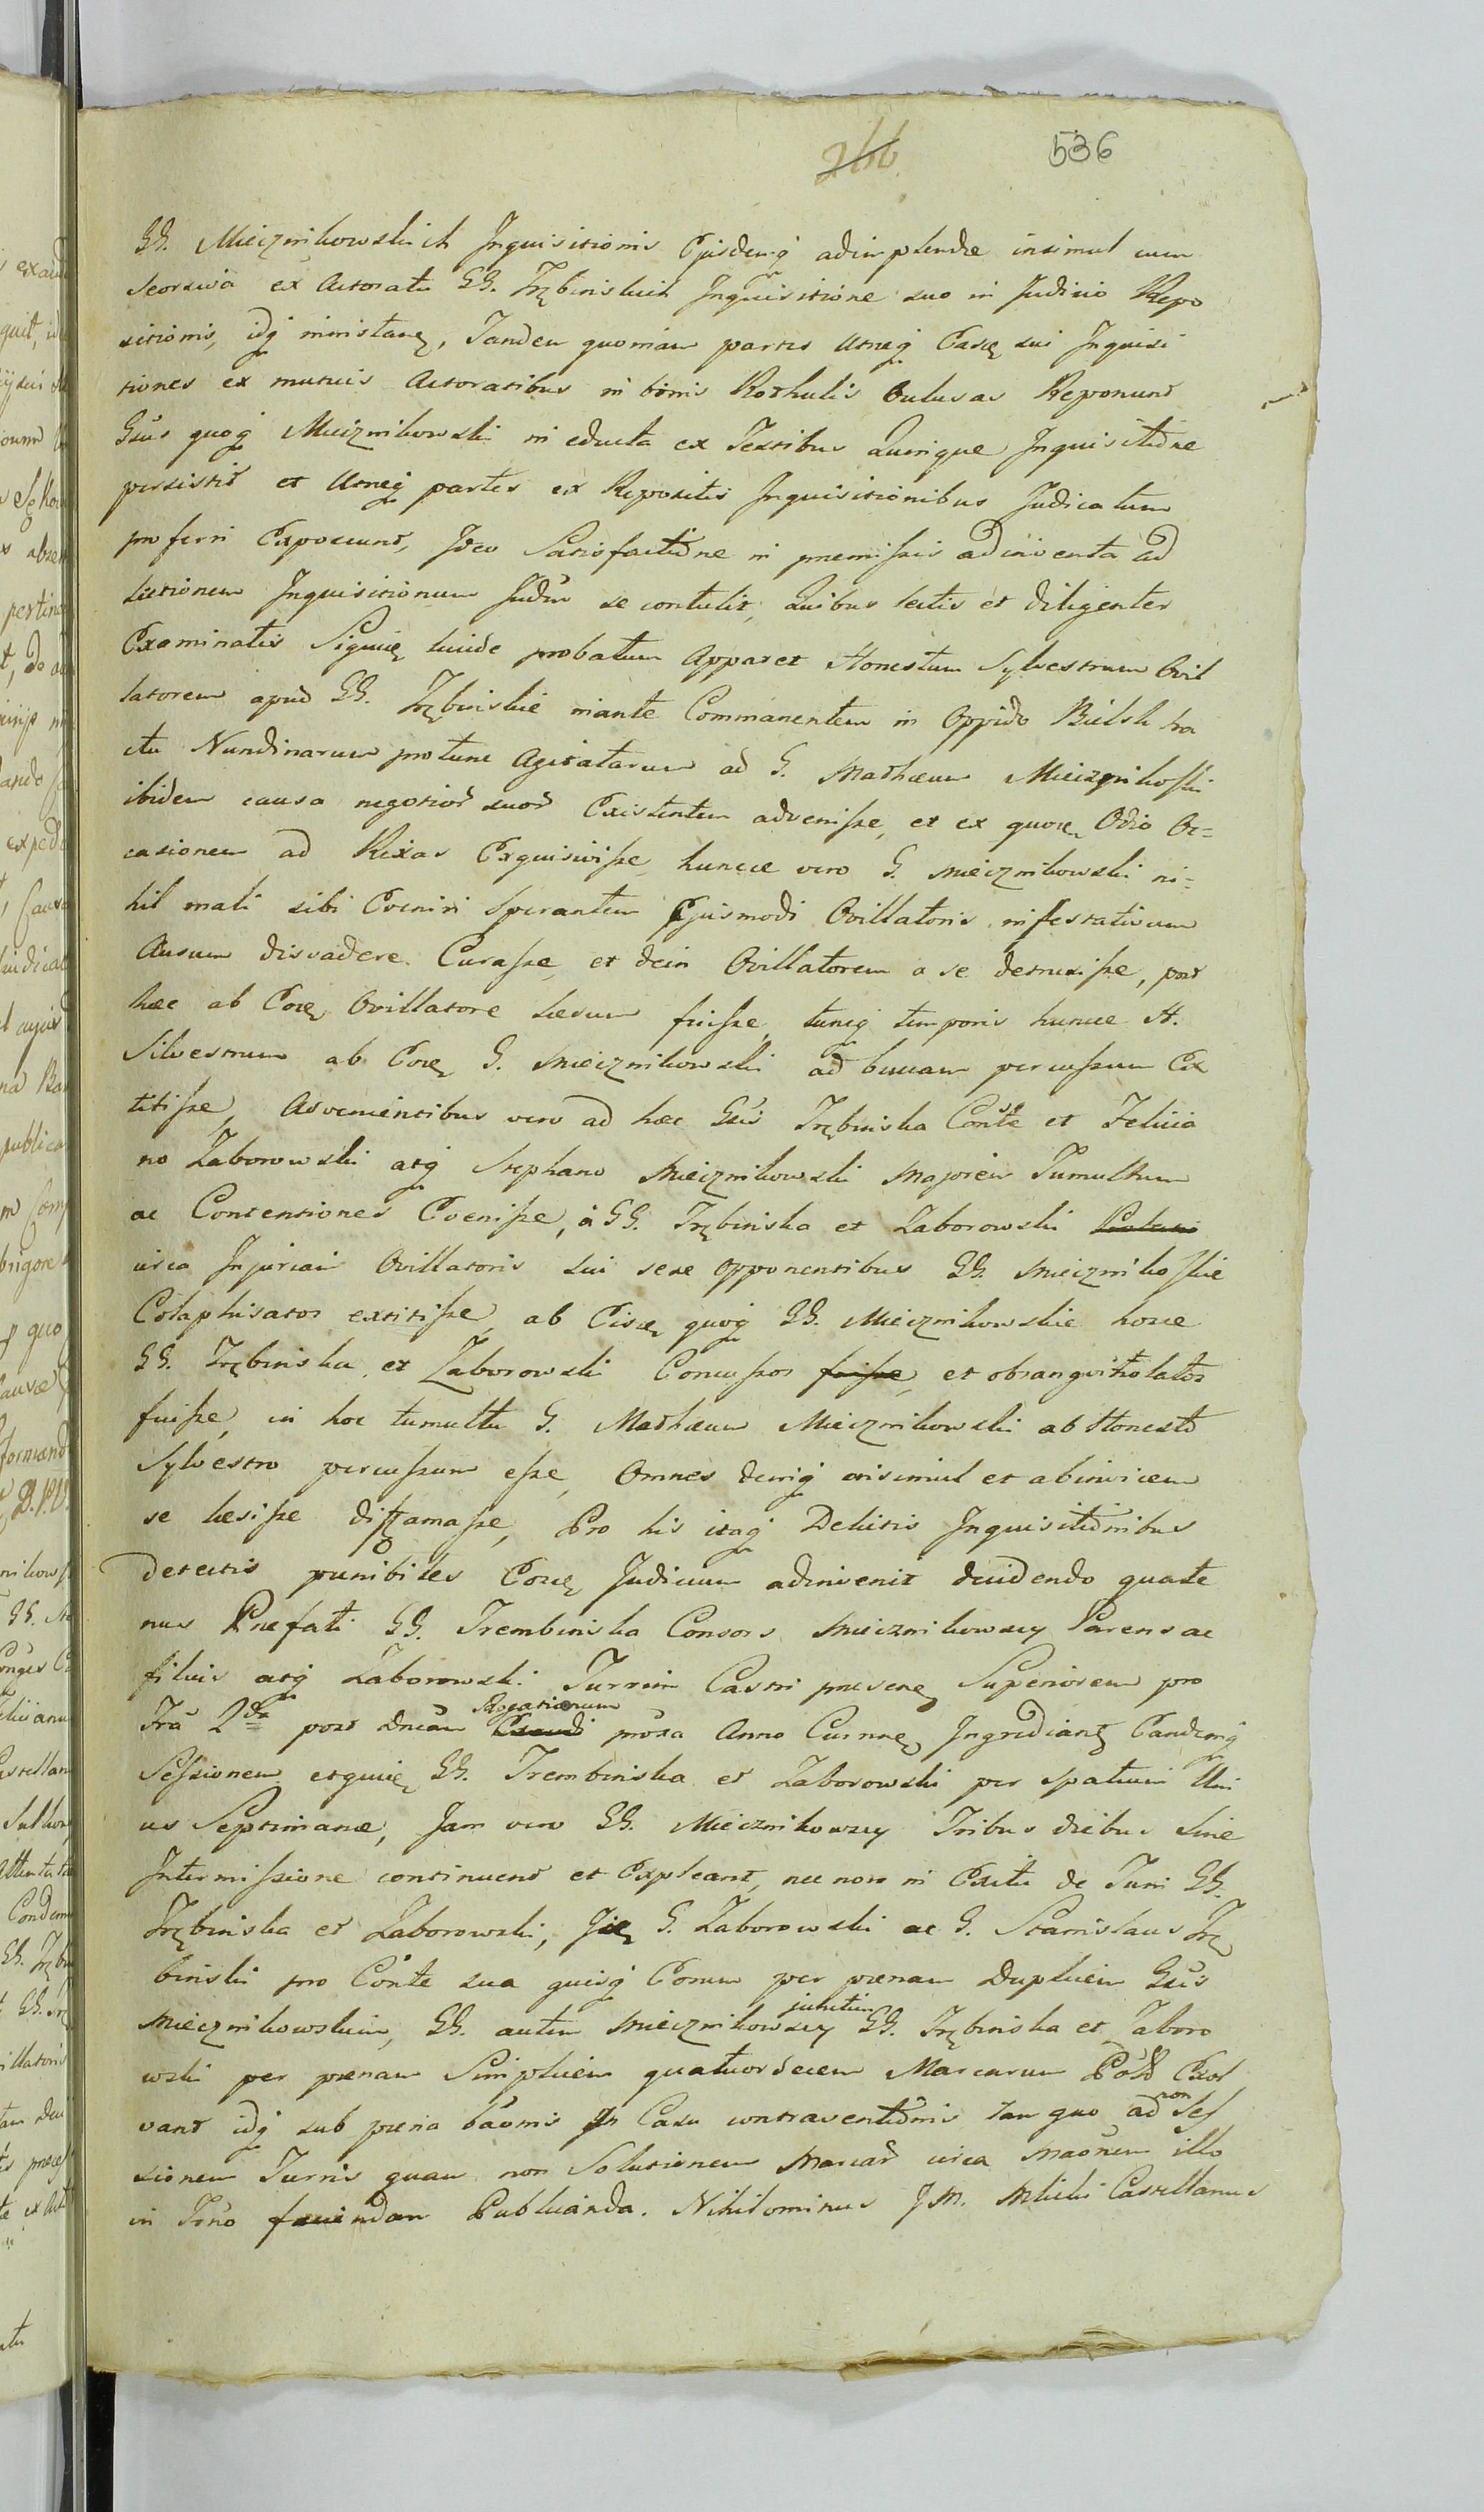 266 536
GG. Mieiznikowskich Inquisitionis Ejusdemq adimplendæ insimul cum
seorsiva ex Actoratu GG. Trębinskich Inquisitione suo in Judicio Repo
sitionis, idq instante, Tandem quoniam partes Utræq Easdę sui Inquisi
tiones ex mutuis Actoratibus in binis Rothulis Bulusas Reponunt
Gsus quoq Mieiznikowski in educta ex Testibus Quinque Inquisitione
persistit et Utræq partes ex Repositis Inquisitionibus Judicatum
proferri Exposcunt, Ideo Satisfactione in præmissis adinventa ad
lectionem Inquisitionum Judm se contulit, Quibus lectis et diligenter
Examinatis Siquidę lucide probatum Apparet Honestum Sylvestrum Ovil
latorem apud GG. Trębinskie mante Commanentem in Oppido Bielsk tra
ctu Nundinarum protunc Agitatarum ad G. Mathæum Mieiznikoski
ibidem causa negotior suor Existentem advenisse, et ex quore Odio Oc=
casionem ad Rixas Exquisivisse, huncce vero G. Mieiznikowski ni=
hil mali sibi Eveniri Sperantem Ejusmodi Ovillatoris infestativum
Ausum dissvadere Curasse, et dein Ovillatorem a se detrusisse, post
hæc ab Eodę Ovillatore læsum fuisse, tuncq temporis huncce H.
Silvestrum ab Eodę G. Mieiznikowski ad buccam percussum Ex
titisse, Advenientibus vero ad hæc Gsis Trębinska Conte et Felicia
no Zaborowski atq Stephano Mieiznikowski Majorem Tumultum
ac Contentiones Evenisse, à GG. Trębinska et Zaborowski
circa Injuriam Ovillatoris sui sese opponentibus GG. Mieizniko skie
Colaphisatos extitisse, ab Eisdę quoq GG. Mieiznikowskie hosce
GG. Trębinska et Zaborowski Concussos fuisse, et obsangvinolatos
fuisse, in hoc tumultu G. Mathæum Mieiznikowski ab Honesto
Sylvestro percussum esse, Omnes deniq insimul et abinvicem
se læsisse diffamasse, Pro his itaq Delictis Inquisitionibus
detectis punibiles Eosdę Judicium adinvenit decidendo quate
nus Præfati GG. Trembinska Consors Mieiznikowscy Parens ac
filius atq Zaborowski Turrim Castri præsentę Superiorem pro
Fria 2da post Dnicam Rogationum Exaudi proxa Anno Currentę Ingrediantę Eandemq
Sessionem etquidę GG. Trembinska et Zaborowski per Spatium Uni
us Septimanæ, Jam vero GG. Mieiznikowscy Tribus diebus Sine
Intermissione continuent et Expleant, nec non in Exitu de Turri GG.
Trębinska et Zaborowski, Idę G. Zaborowski ac G. Stanislaus Trę
binski pro Conte sua quisq Eorum per pœnam Duplicem Gsis
Mieiznikowskim, GG. autem Mieiznikowscy junctim GG. Trębinska et Zaboro
wski per pœnam Simplicem quatuordecem Marcarum Pol Exol
vant idq sub pœna bãonis In Casu contraventionis tam quo ad non Ses
sionem Turris quam non Solutionem Marcar circa Mãonem illo
in Foro faciendam Publicanda. Nihilominus J M. Mlicki Castellanus